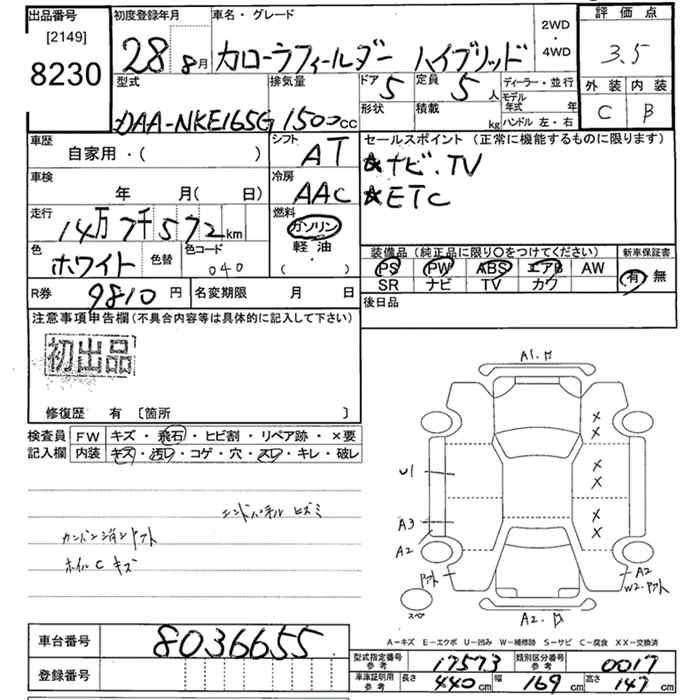 出品番号
[2149]
8230
初度登録年月
28 8月
車名・グレード
カローラフィールダー ハイブリッド
2WD
・
4WD
評価点
3.5
外装 内装
C B
型式
DAA-NKE165G
排気量
1500cc
ドア
5
定員
5人
形状
積載
kg
ディーラー・並行
モデル年式 年
ハンドル 左・右
車歴
自家用・( )
シフト
AT
車検
年 月( 日)
冷房
AAC
走行
14万7千572km
燃料
ガソリン
軽油
( )
色
ホワイト
色替
色コード
040
R券
9810円
名変期限 月 日
セールスポイント(正常に機能するものに限ります)
☆ナビ.TV
☆ETC
装備品(純正品に限り○をつけてください)
PS PW ABS エアB AW
SR ナビ TV カワ
新車保証書
有 無
後日品
注意事項申告欄(不具合内容等は具体的に記入して下さい)
初出品
修復歴 有 〔箇所 〕
検査員
記入欄
FW キズ・飛石・ヒビ割・リペア跡・×要
内装 キズ・汚レ・コゲ・穴・スレ・キレ・破レ
エンドパネル ヒズミ
ホイルC キズ
A1.
U1
A3
A2
スペア
A2.
A2
W2.
×
×
×
×
×
×
A-キズ E-エクボ U-凹み W-補修跡 S-サビ C-腐食 XX-交換済
車台番号
8036655
登録番号
型式指定番号
参考
17573
類別区分番号
参考
0017
車庫証明用
参考
長さ 440cm 幅 169cm 高さ 147cm